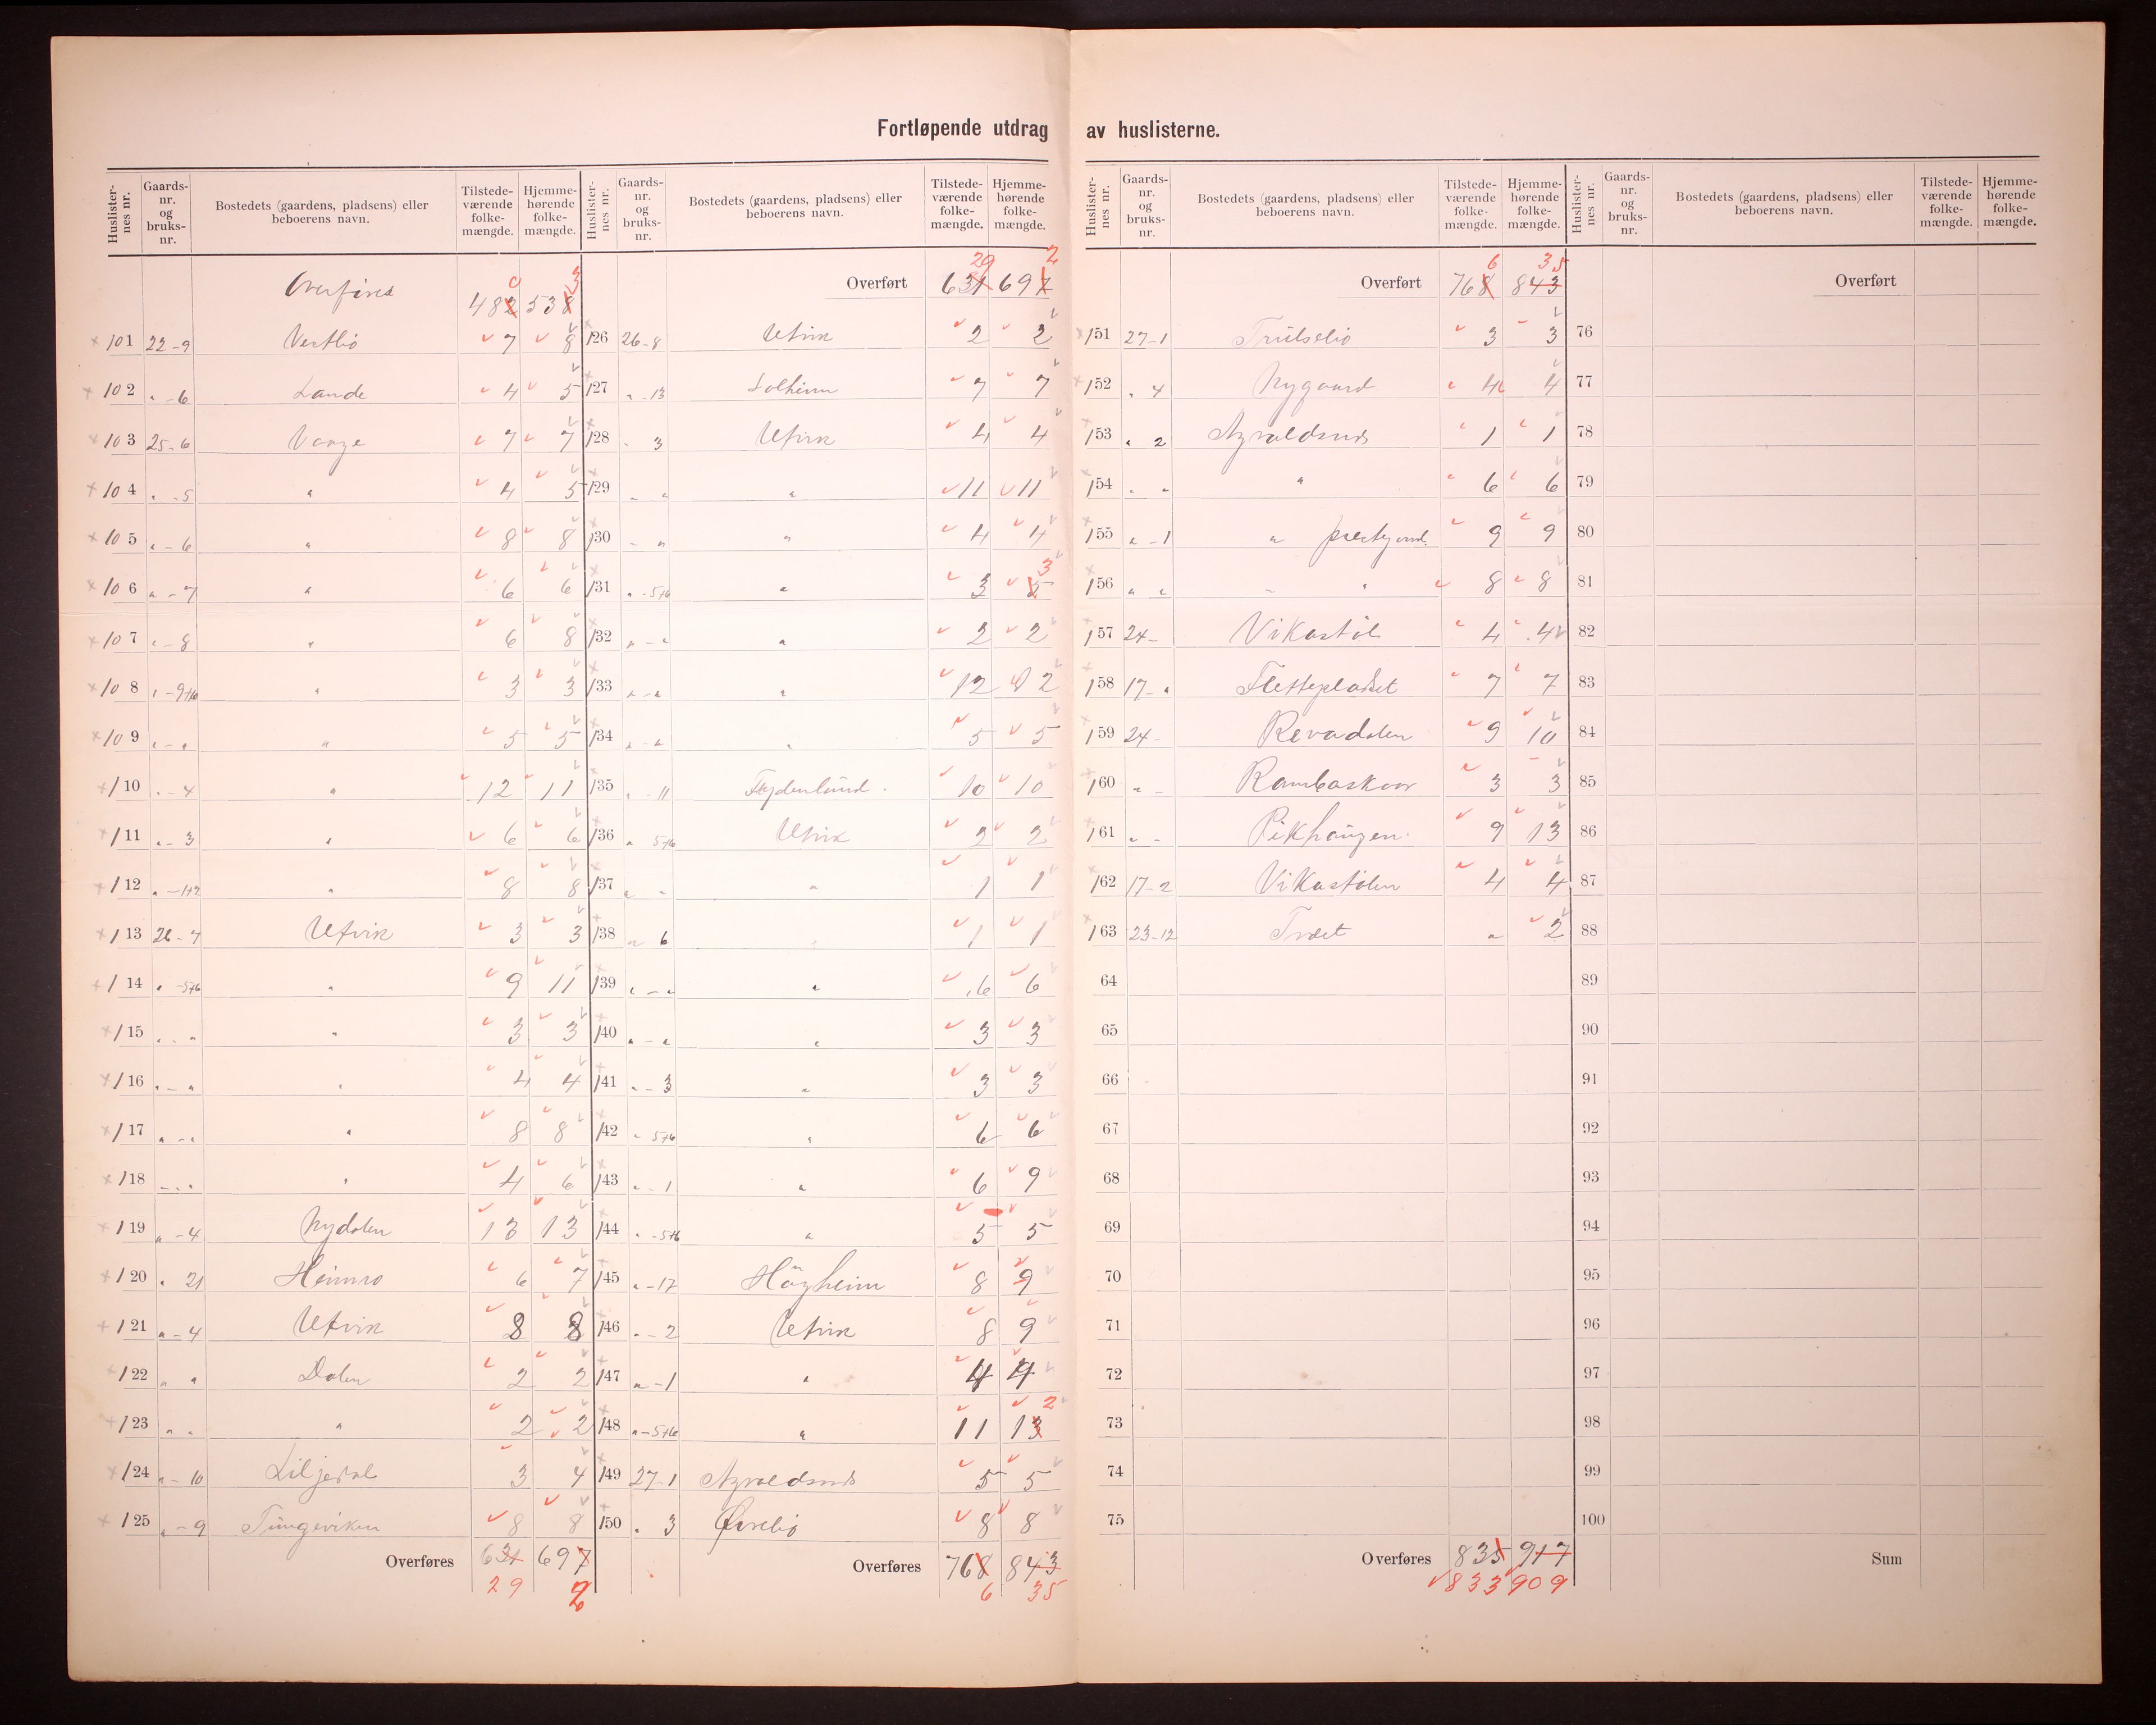 Fortløpende utdrag av huslisterne.
Huslister-nes nr. | Gaards-nr. og bruks-nr. | Bostedets (gaardens, pladsens) eller beboerens navn. | Tilstede-værende folke-mængde. | Hjemme-hørende folke-mængde.
Overføres 482 0 538 3
101 22-9 Vestlid 7 8
102 „-6 Lande 4 5
103 25-6 Vange 7 7
104 „-5 „ 4 5
105 „-6 „ 8 8
106 „-7 „ 6 6
107 „-8 „ 6 8
108 „-9+10 „ 3 3
109 „-„ „ 5 5
110 „-4 „ 12 11
111 „-3 „ 6 6
112 „-1+2 „ 8 8
113 26-7 Utvik 3 3
114 „-5+6 „ 9 11
115 „-„ „ 3 3
116 „-„ „ 4 4
117 „-„ „ 8 8
118 „-„ „ 4 6
119 „-4 Nydalen 13 13
120 „ 21 Heimro 6 7
121 „-4 Utvik 8 8
122 „ „ Dalen 2 2
123 „ „ „ 2 2
124 „-10 Liljedal 3 4
125 „-9 Tungeviken 8 8
Overføres 631 697
29 2
Huslister-nes nr. | Gaards-nr. og bruks-nr. | Bostedets (gaardens, pladsens) eller beboerens navn. | Tilstede-værende folke-mængde. | Hjemme-hørende folke-mængde.
29 2
Overført 631 697
126 26-8 Utvik 2 2
127 „-13 Solheim 7 7
128 „ 3 Utvik 4 4
129 „ „ „ 11 11
130 „ „ „ 4 4
131 „-5+6 „ 3 5 3
132 „-„ „ 2 2
133 „-„ „ 12 12
134 „-„ „ 5 5
135 „-11 Frydenlund. 10 10
136 „ 5+6 Utvik 2 2
137 „ „ „ 1 1
138 „ 6 „ 1 1
139 „-„ „ 6 6
140 „-„ „ 3 3
141 „-3 „ 3 3
142 „ 5+6 „ 6 6
143 „-1 „ 6 9
144 „-5+6 „ 5 5
145 „-17 Högheim 8 9
146 „-2 Utvik 8 9
147 „-1 „ 4 4
148 „-5+6 „ 11 13 2
149 27-1 5 5
150 „ 3 Øvrelid 8 8
Overføres 768 843
6 35
Huslister-nes nr. | Gaards-nr. og bruks-nr. | Bostedets (gaardens, pladsens) eller beboerens navn. | Tilstede-værende folke-mængde. | Hjemme-hørende folke-mængde.
6 35
Overført 768 843
151 27-1 Trulselid 3 3
152 „ 4 Nygaard 4 4
153 „ 2 1 1
154 „ „ „ 6 6
155 „-1 „ 9 9
156 „ „ „ „ 8 8
157 24- Vikastøl 4 4
158 17-„ Fletteplasset 7 7
159 24- Revadalen 9 10
160 „- Rambaskaar 3 3
161 „- Pikhaugen 9 13
162 17-2 Vikastølen 4 4
163 23-12 Trået „ 2
64
65
66
67
68
69
70
71
72
73
74
75
Overføres 835 917
833 909
Huslister-nes nr. | Gaards-nr. og bruks-nr. | Bostedets (gaardens, pladsens) eller beboerens navn. | Tilstede-værende folke-mængde. | Hjemme-hørende folke-mængde.
Overført
76
77
78
79
80
81
82
83
84
85
86
87
88
89
90
91
92
93
94
95
96
97
98
99
100
Sum